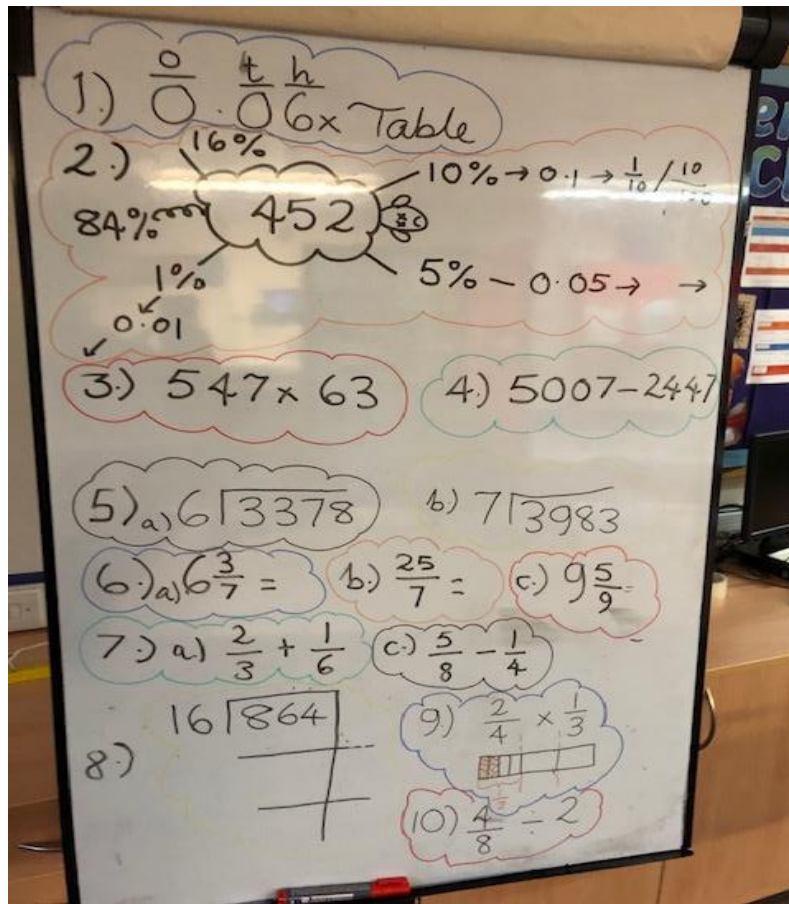 o t h
1.) 0.06x Table
2.) 16%
10% → 0.1 → 1/10 / 10/100
84% 452
1%
5% - 0.05 → →
0.01
3.) 547 x 63
4.) 5007 - 2447
5) a) 6 3378
b.) 7 3983
6.) a) 6 3/7 =
b.) 25/7 =
c.) 9 5/9 =
7.) a.) 2/3 + 1/6
c.) 5/8 - 1/4
8.) 16 864
9.) 2/4 x 1/3
1/3
10) 4/8 ÷ 2